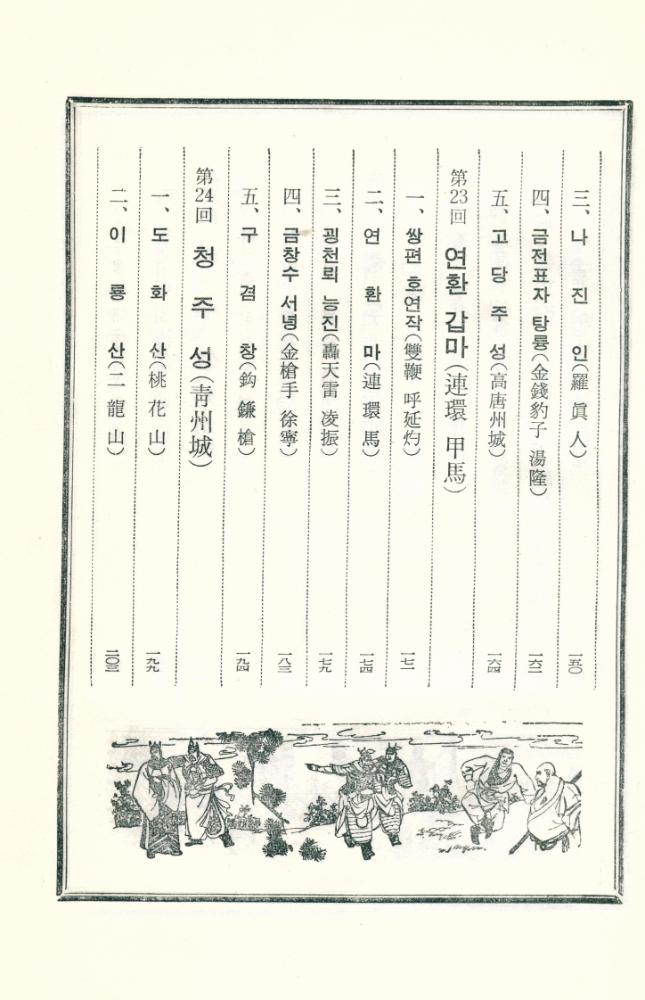 三、나진인(羅眞人) 一五〇
四、금전표자 탕륭(金錢豹子 湯隆) 一六二
五、고당주성(高唐州城) 一六四
第23回 연환 갑마(連環 甲馬)
一、쌍편 호연작(雙鞭 呼延灼) 一七一
二、연환마(連環馬) 一七四
三、굉천뢰 능진(轟天雷 凌振) 一七九
四、금창수 서녕(金槍手 徐寧) 一八三
五、구겸창(鈎鎌槍) 一九四
第24回 청주성(靑州城)
一、도화산(桃花山) 一九九
二、이룡산(二龍山) 二〇三